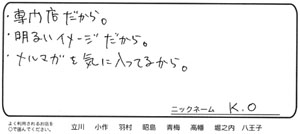 ・専門店だから。
・明るいイメージだから。
・メルマガを気に入ってるから。
ニックネーム K.O
よく利用されるお店を
○で囲んでください。 立川 小作 羽村 昭島 青梅 高幡 堀之内 八王子